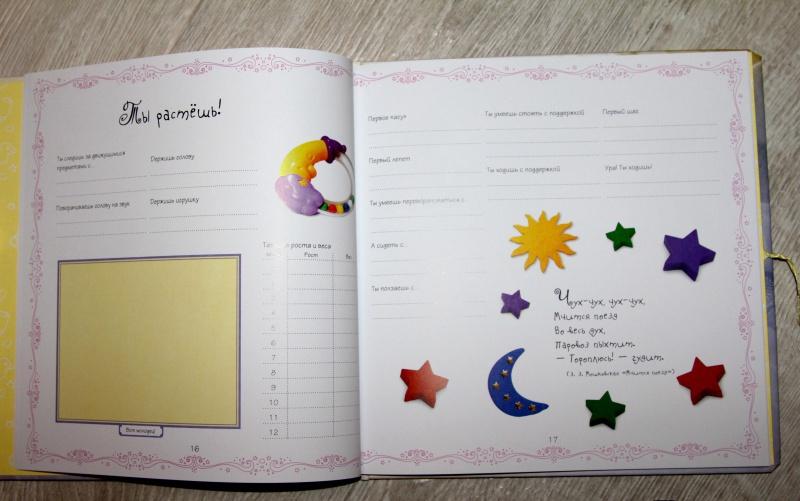 Ты растёшь!
Ты следишь за движущимися
предметами с...
Держишь голову
Поворачиваешь голову на звук
Держишь игрушку
роста и веса
Рост
6
7
8
9
10
11
12
Вот молодец!
16
Первое «агу»
Первый лепет
Ты умеешь переворачиваться с...
А сидеть с...
Ты ползаешь с...
Ты умеешь стоять с поддержкой
Ты ходишь с поддержкой
Первый шаг
Ура! Ты ходишь!
Чух-чух, чух-чух,
Мчится поезд
Во весь дух,
Паровоз пыхтит.
— Тороплюсь! — гудит.
(Э. Э. Мошковская «Мчится поезд»)
17